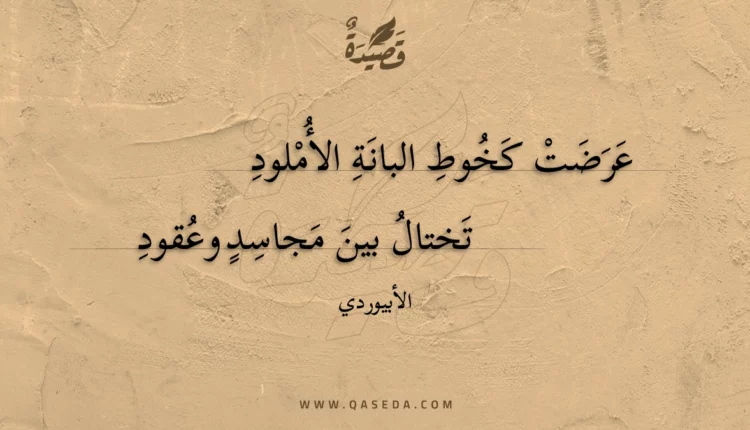 قَصِيْدَةٌ
عَرَضَتْ كَخُوطِ البانَةِ الأُمْلودِ
تَختالُ بينَ مَجاسِدٍ وعُقودِ
الأبيوردي
WWW.QASEDA.COM